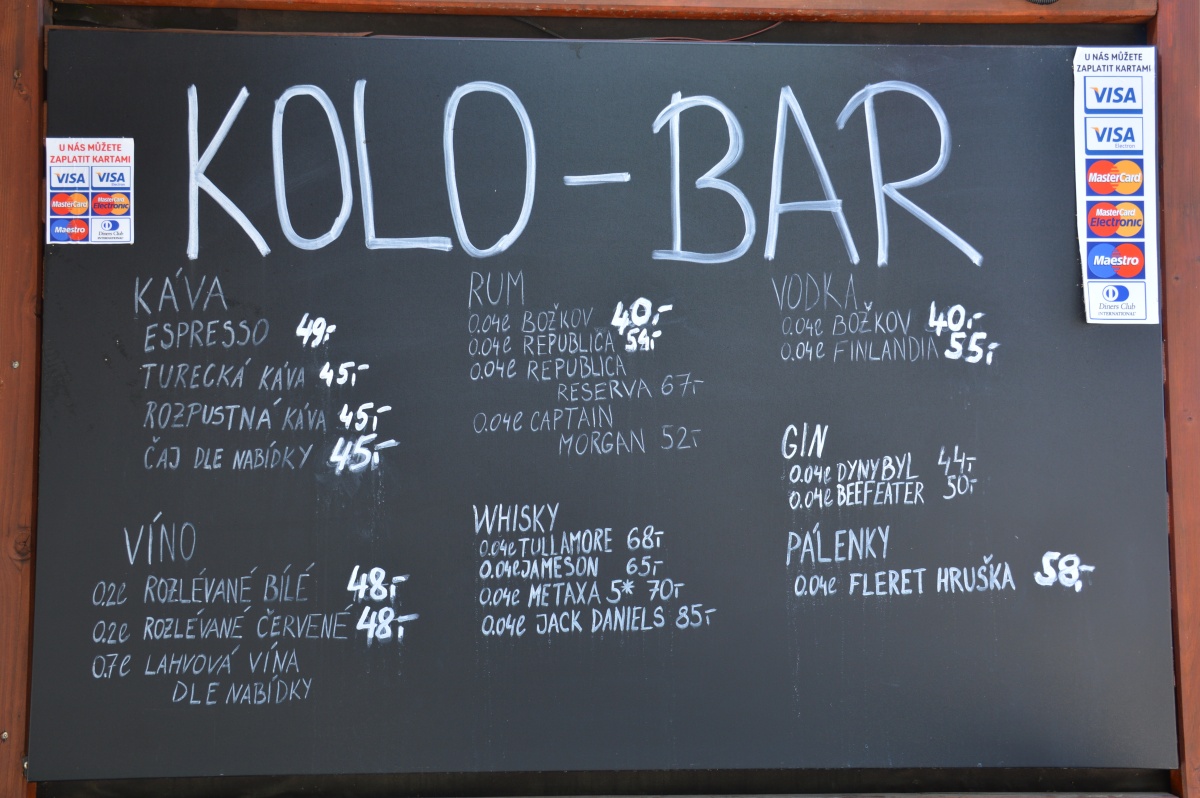 KOLO - BAR
U NÁS MŮŽETE
ZAPLATIT KARTAMI
VISA
VISA
Electron
MasterCard
MasterCard
Electronic
Maestro
Diners Club
INTERNATIONAL
U NÁS MŮŽETE
ZAPLATIT KARTAMI
VISA
VISA
Electron
MasterCard
MasterCard
Electronic
Maestro
Diners Club
INTERNATIONAL
KÁVA
ESPRESSO 49,-
TURECKÁ KÁVA 45,-
ROZPUSTNÁ KÁVA 45,-
ČAJ DLE NABÍDKY 45,-
VÍNO
0.2l ROZLÉVANÉ BÍLÉ 48,-
0.2l ROZLÉVANÉ ČERVENÉ 48,-
0.7l LAHVOVÁ VÍNA
DLE NABÍDKY
RUM
0.04l BOŽKOV 40,-
0.04l REPUBLICA 54,-
0.04l REPUBLICA
RESERVA 67,-
0.04l CAPTAIN
MORGAN 52,-
WHISKY
0.04l TULLAMORE 68,-
0.04l JAMESON 65,-
0.04l METAXA 5* 70,-
0.04l JACK DANIELS 85,-
VODKA
0.04l BOŽKOV 40,-
0.04l FINLANDIA 55,-
GIN
0.04l DYNYBYL 44,-
0.04l BEEFEATER 50,-
PÁLENKY
0.04l FLERET HRUŠKA 58,-